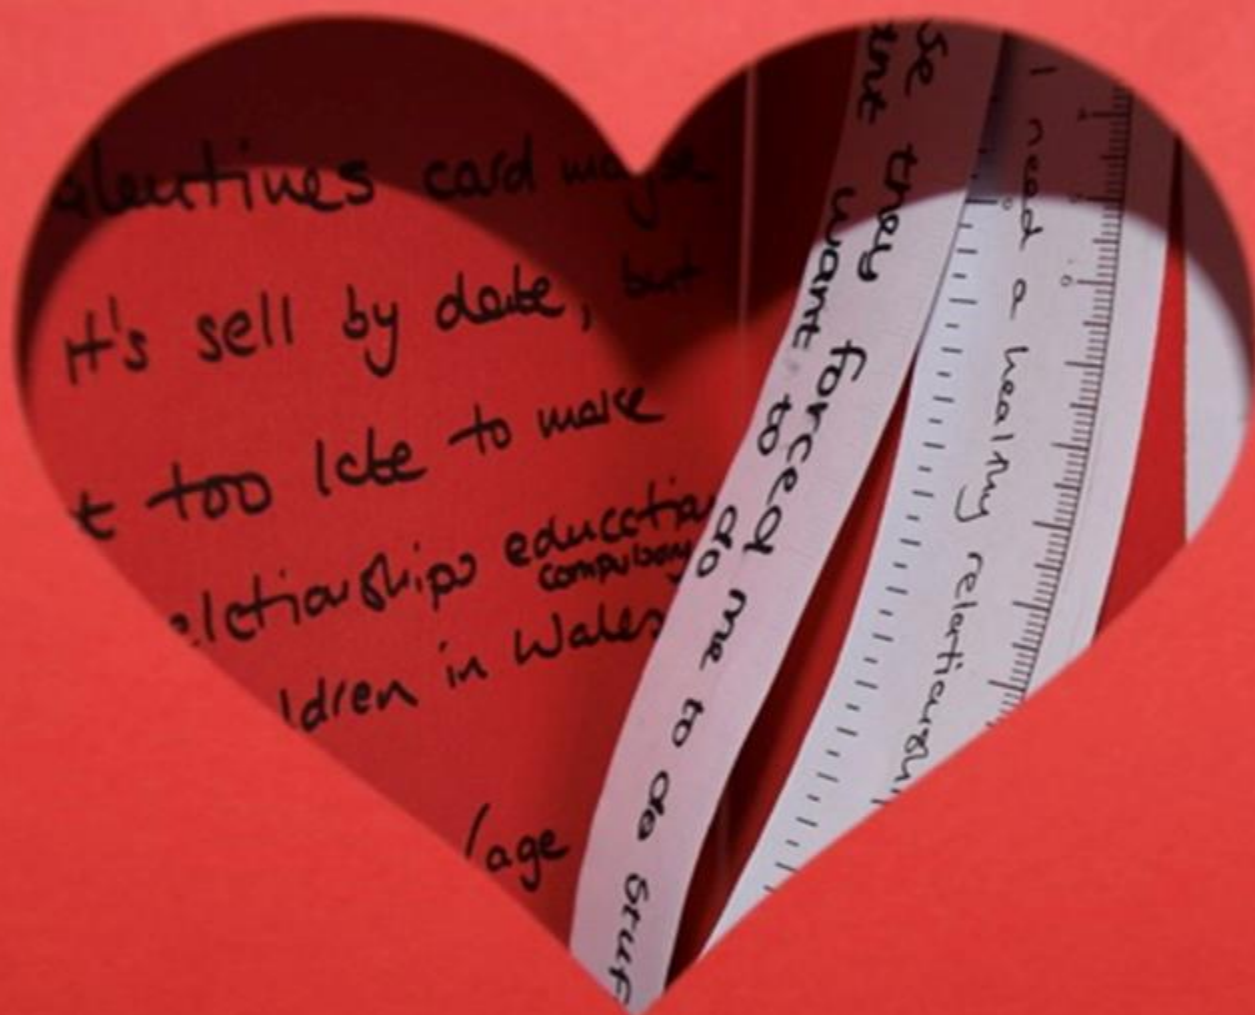 alentines card may be
It's sell by date, but
t too late to make
elationships education
compulsory
ldren in Wales
/age
se they forced me to do stuf
want to do
I need a healthy relationshi